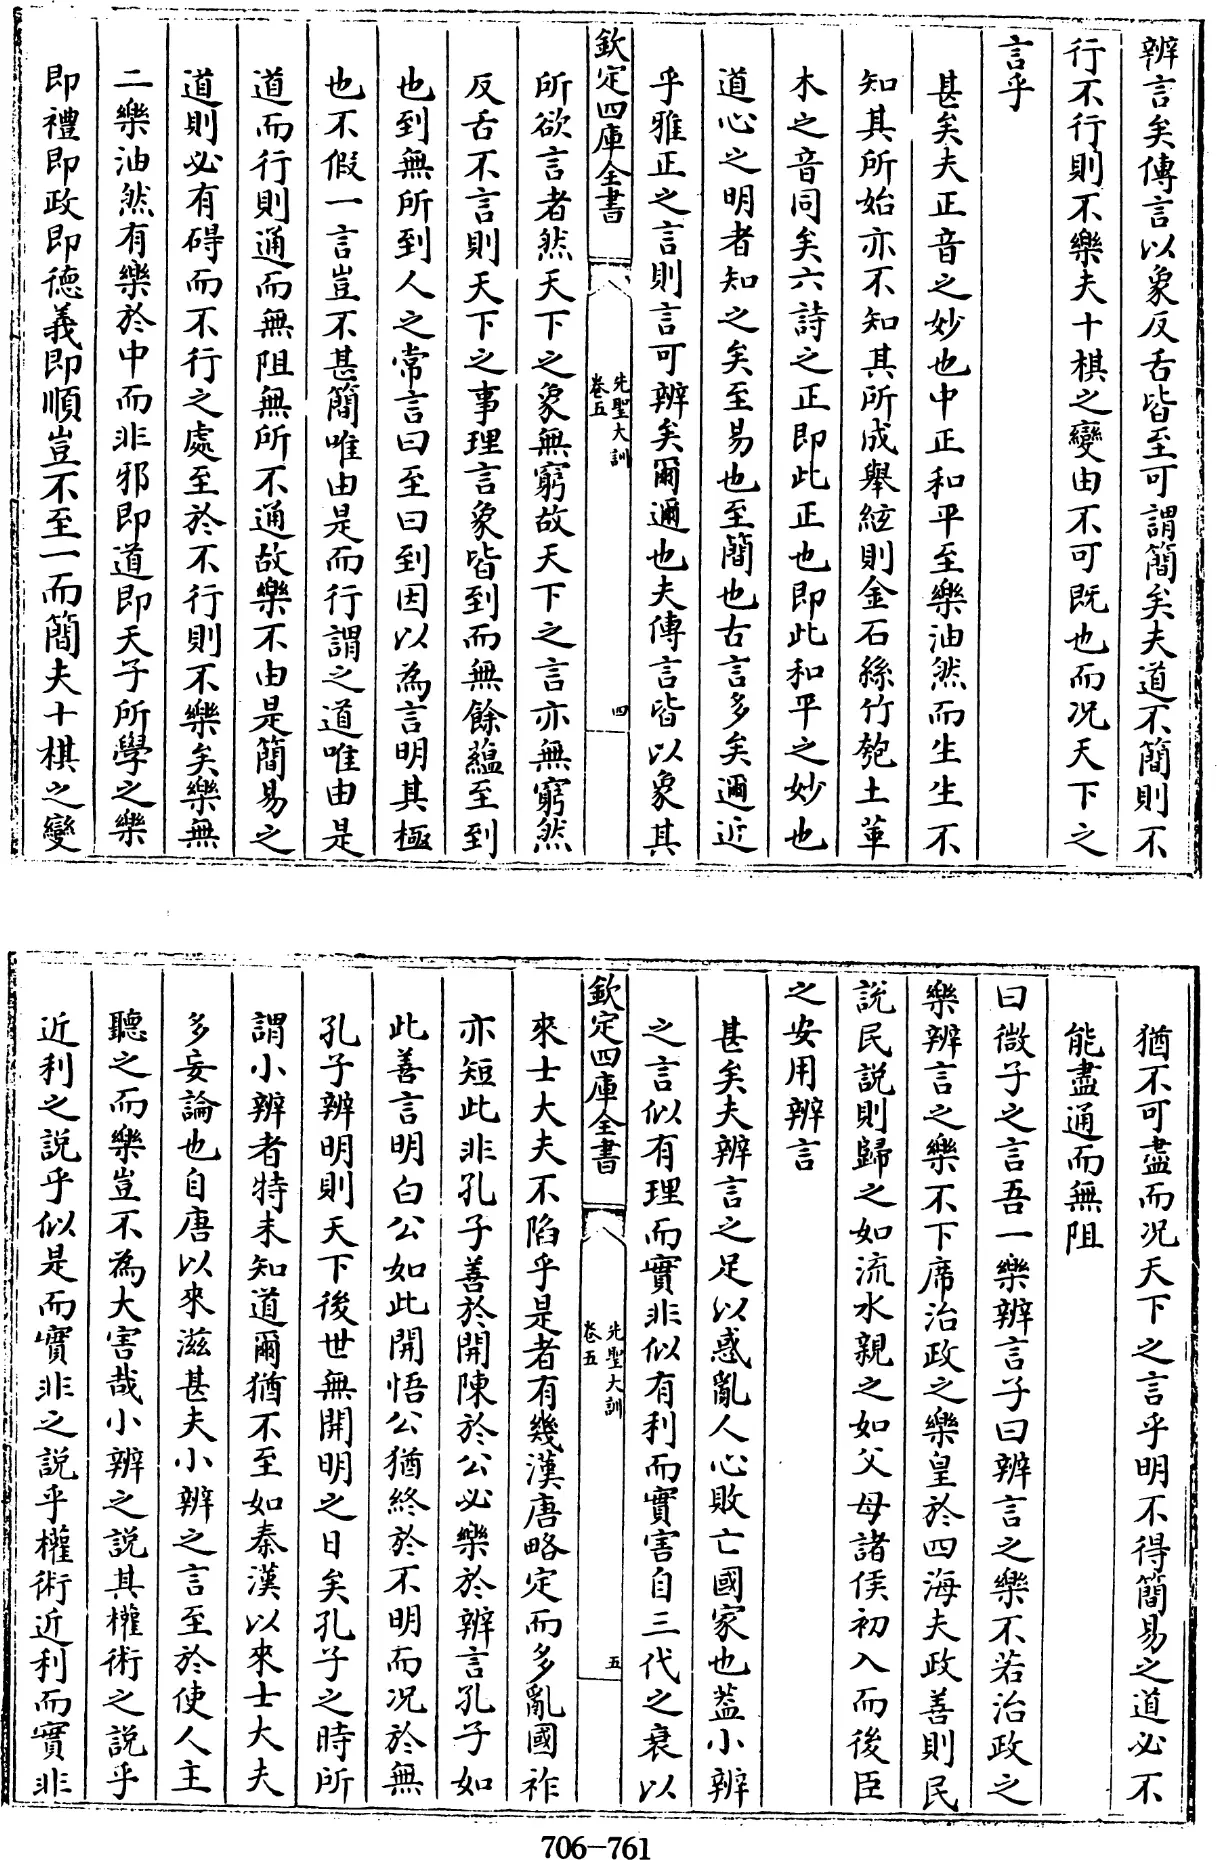 辨言矣傳言以象反舌皆至可謂簡矣夫道不簡則不
行不行則不樂夫十棋之變由不可既也而况天下之
言乎
甚矣夫正音之妙也中正和平至樂油然而生生不
知其所始亦不知其所成舉絃則金石絲竹匏土革
木之音同矣六詩之正即此正也即此和平之妙也
道心之明者知之矣至易也至簡也古言多矣邇近
乎雅正之言則言可辨矣爾邇也夫傳言皆以象其
欽定四庫全書
先聖大訓
卷五
四
所欲言者然天下之象無窮故天下之言亦無窮然
反舌不言則天下之事理言象皆到而無餘蘊至到
也到無所到人之常言曰至曰到因以為言明其極
也不假一言豈不甚簡唯由是而行謂之道唯由是
道而行則通而無阻無所不通故樂不由是簡易之
道則必有碍而不行之處至於不行則不樂矣樂無
二樂油然有樂於中而非邪即道即天子所學之樂
即禮即政即德義即順豈不至一而簡夫十棋之變
猶不可盡而况天下之言乎明不得簡易之道必不
能盡通而無阻
曰微子之言吾一樂辨言子曰辨言之樂不若治政之
樂辨言之樂不下席治政之樂皇於四海夫政善則民
説民説則歸之如流水親之如父母諸侯初入而後臣
之安用辨言
甚矣夫辨言之足以惑亂人心敗亡國家也葢小辨
之言似有理而實非似有利而實害自三代之衰以
欽定四庫全書
先聖大訓
卷五
五
來士大夫不陷乎是者有幾漢唐略定而多亂國祚
亦短此非孔子善於開陳於公必樂於辨言孔子如
此善言明白公如此開悟公猶終於不明而况於無
孔子辨明則天下後世無開明之日矣孔子之時所
謂小辨者特未知道爾猶不至如秦漢以來士大夫
多妄論也自唐以來滋甚夫小辨之言至於使人主
聽之而樂豈不為大害哉小辨之説其權術之説乎
近利之説乎似是而實非之説乎權術近利而實非
706-761